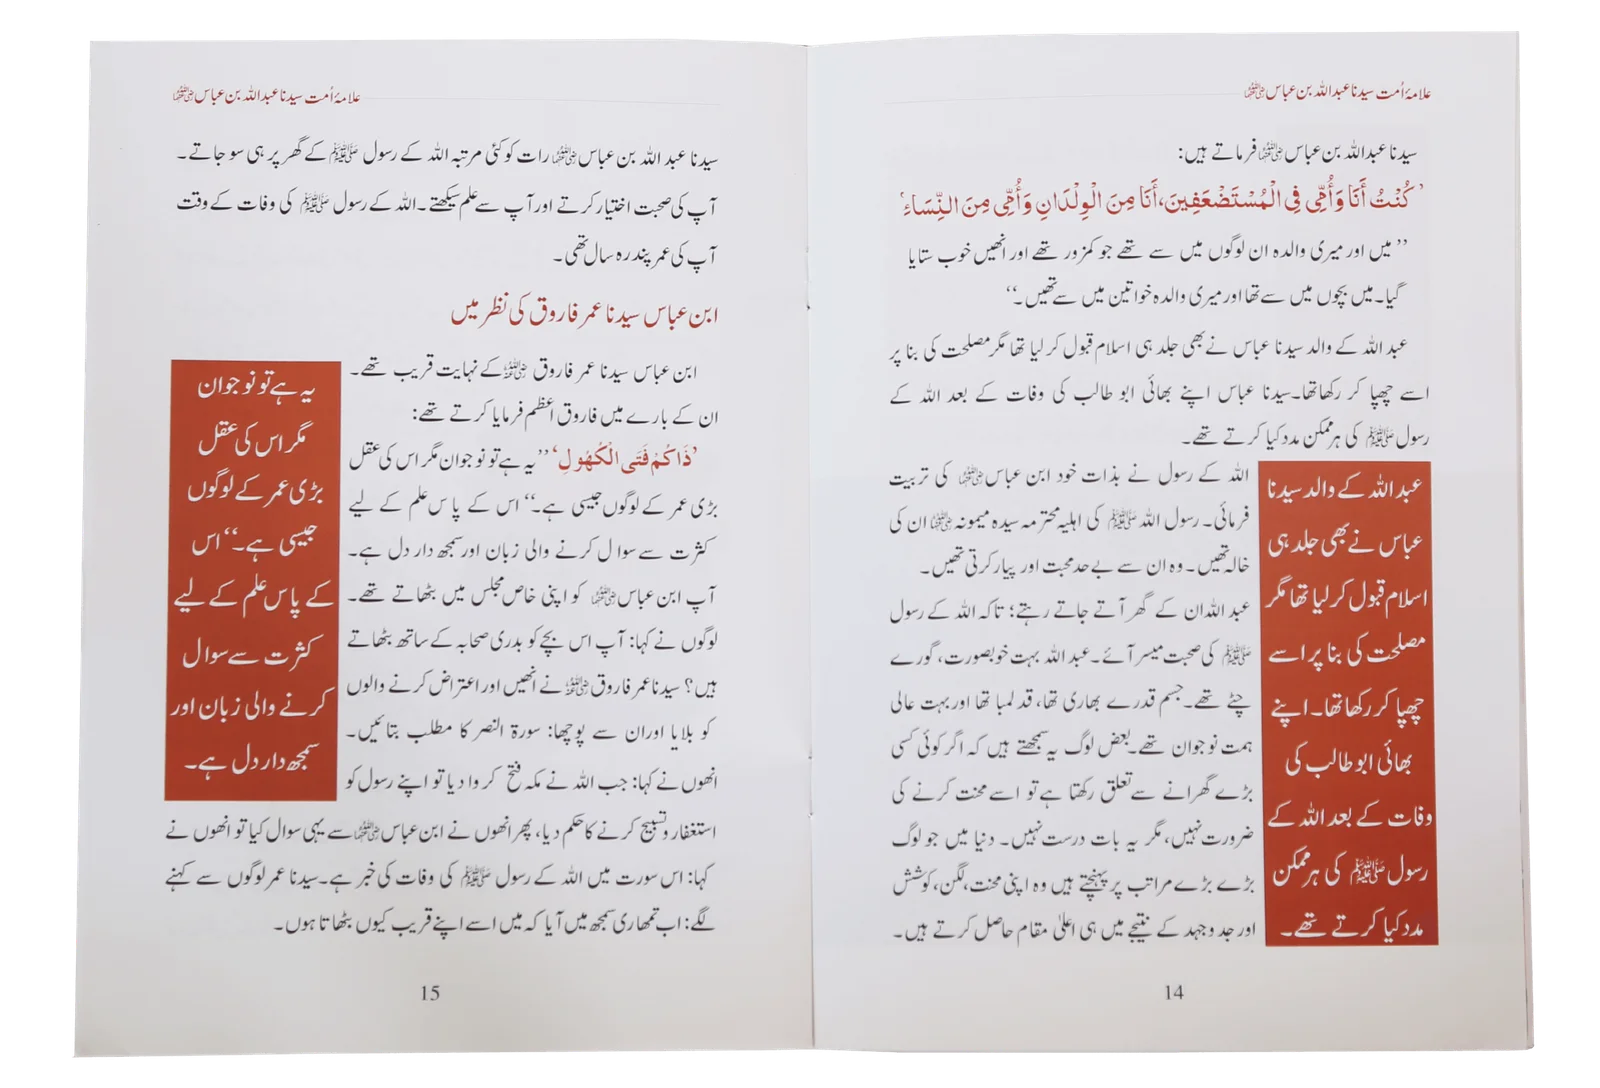 علامۂ اُمت سیدنا عبد اللہ بن عباس رضی اللہ عنہما
سیدنا عبداللہ بن عباس رضی اللہ عنہما فرماتے ہیں:
’كُنْتُ أَنَا وَأُمِّى فِى الْمُسْتَضْعَفِينَ، أَنَا مِنَ الْوِلْدَانِ وَأُمِّى مِنَ النِّسَاءِ‘
’’ میں اور میری والدہ ان لوگوں میں سے تھے جو کمزور تھے اور انھیں خوب ستایا
گیا۔ میں بچوں میں سے تھا اور میری والدہ خواتین میں سے تھیں۔‘‘
عبد اللہ کے والد سیدنا عباس نے بھی جلد ہی اسلام قبول کر لیا تھا مگر مصلحت کی بنا پر
اسے چھپا کر رکھا تھا۔ سیدنا عباس اپنے بھائی ابو طالب کی وفات کے بعد اللہ کے
رسول ﷺ کی ہر ممکن مدد کیا کرتے تھے۔
اللہ کے رسول نے بذات خود ابن عباس رضی اللہ عنہما کی تربیت
فرمائی۔ رسول اللہ ﷺ کی اہلیہ محترمہ سیدہ میمونہ رضی اللہ عنہا ان کی
خالہ تھیں۔ وہ ان سے بے حد محبت اور پیار کرتی تھیں۔
عبد اللہ ان کے گھر آتے جاتے رہتے؛ تاکہ اللہ کے رسول
ﷺ کی صحبت میسر آئے۔ عبد اللہ بہت خوبصورت، گورے
چٹے تھے۔ جسم قدرے بھاری تھا، قد لمبا تھا اور بہت عالی
ہمت نوجوان تھے۔ بعض لوگ یہ سمجھتے ہیں کہ اگر کوئی کسی
بڑے گھرانے سے تعلق رکھتا ہے تو اسے محنت کرنے کی
ضرورت نہیں، مگر یہ بات درست نہیں۔ دنیا میں جو لوگ
بڑے بڑے مراتب پر پہنچتے ہیں وہ اپنی محنت، لگن، کوشش
اور جد و جہد کے نتیجے میں ہی اعلیٰ مقام حاصل کرتے ہیں۔
عبد اللہ کے والد سیدنا
عباس نے بھی جلد ہی
اسلام قبول کر لیا تھا مگر
مصلحت کی بنا پر اسے
چھپا کر رکھا تھا۔ اپنے
بھائی ابو طالب کی
وفات کے بعد اللہ کے
رسول ﷺ کی ہر ممکن
مدد کیا کرتے تھے۔
14
علامۂ اُمت سیدنا عبد اللہ بن عباس رضی اللہ عنہما
سیدنا عبد اللہ بن عباس رضی اللہ عنہما رات کو کئی مرتبہ اللہ کے رسول ﷺ کے گھر پر ہی سو جاتے۔
آپ کی صحبت اختیار کرتے اور آپ سے علم سیکھتے۔ اللہ کے رسول ﷺ کی وفات کے وقت
آپ کی عمر پندرہ سال تھی۔
ابن عباس سیدنا عمر فاروق کی نظر میں
ابن عباس سیدنا عمر فاروق رضی اللہ عنہ کے نہایت قریب تھے۔
ان کے بارے میں فاروق اعظم فرمایا کرتے تھے:
’ذَاكُمْ فَتَى الْكُهُولِ‘ ’’یہ ہے تو نوجوان مگر اس کی عقل
بڑی عمر کے لوگوں جیسی ہے۔‘‘ اس کے پاس علم کے لیے
کثرت سے سوال کرنے والی زبان اور سمجھ دار دل ہے۔
آپ ابن عباس رضی اللہ عنہما کو اپنی خاص مجلس میں بٹھاتے تھے۔
لوگوں نے کہا: آپ اس بچے کو بدری صحابہ کے ساتھ بٹھاتے
ہیں؟ سیدنا عمر فاروق رضی اللہ عنہ نے انھیں اور اعتراض کرنے والوں
کو بلایا اور ان سے پوچھا: سورۃ النصر کا مطلب بتائیں۔
انھوں نے کہا: جب اللہ نے مکہ فتح کروا دیا تو اپنے رسول کو
استغفار و تسبیح کرنے کا حکم دیا، پھر انھوں نے ابن عباس رضی اللہ عنہما سے یہی سوال کیا تو انھوں نے
کہا: اس سورت میں اللہ کے رسول ﷺ کی وفات کی خبر ہے۔ سیدنا عمر لوگوں سے کہنے
لگے: اب تمھاری سمجھ میں آیا کہ میں اسے اپنے قریب کیوں بٹھاتا ہوں۔
یہ ہے تو نوجوان
مگر اس کی عقل
بڑی عمر کے لوگوں
جیسی ہے۔‘‘ اس
کے پاس علم کے لیے
کثرت سے سوال
کرنے والی زبان اور
سمجھ دار دل ہے۔
15